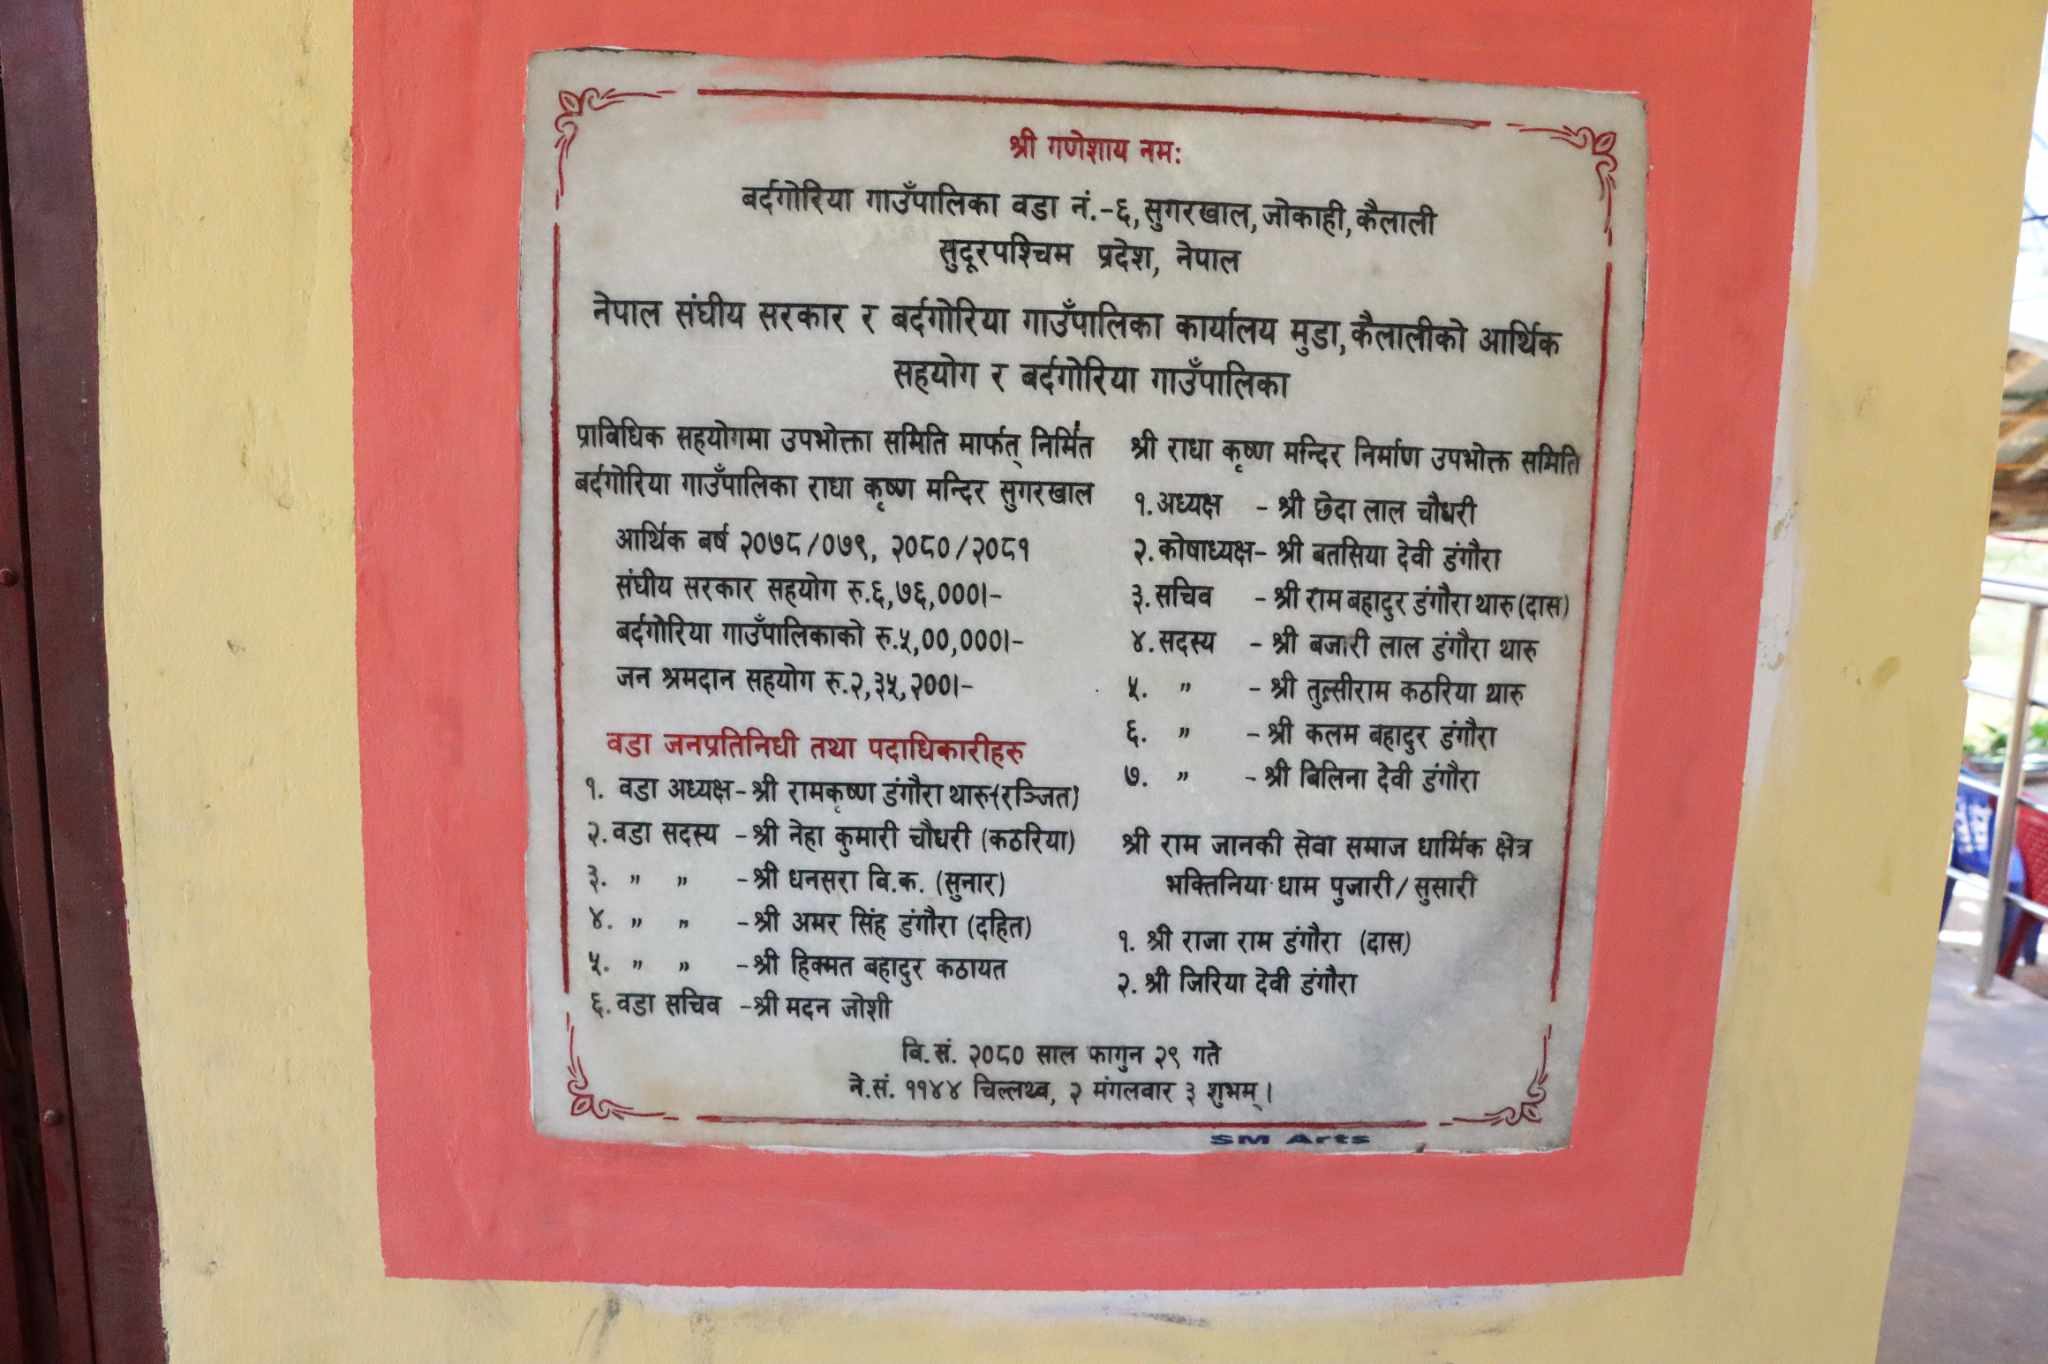 श्री गणेशाय नमः
बर्दगोरिया गाउँपालिका वडा नं.-६, सुगरखाल, जोकाही, कैलाली
सुदूरपश्चिम प्रदेश, नेपाल
नेपाल संघीय सरकार र बर्दगोरिया गाउँपालिका कार्यालय मुडा, कैलालीको आर्थिक
सहयोग र बर्दगोरिया गाउँपालिका
प्राविधिक सहयोगमा उपभोक्ता समिति मार्फत् निर्मित
बर्दगोरिया गाउँपालिका राधा कृष्ण मन्दिर सुगरखाल
आर्थिक बर्ष २०७८/०७९, २०८०/२०८१
संघीय सरकार सहयोग रु.६,७६,०००।-
बर्दगोरिया गाउँपालिकाको रु.५,००,०००।-
जन श्रमदान सहयोग रु.२,३५,२००।-
वडा जनप्रतिनिधी तथा पदाधिकारीहरु
१. वडा अध्यक्ष-श्री रामकृष्ण डंगौरा थारु-(रञ्जित)
२. वडा सदस्य -श्री नेहा कुमारी चौधरी (कठरिया)
३. " " -श्री धनसरा वि.क. (सुनार)
४. " " -श्री अमर सिंह डंगौरा (दहित)
५. " " -श्री हिक्मत बहादुर कठायत
६. वडा सचिव -श्री मदन जोशी
श्री राधा कृष्ण मन्दिर निर्माण उपभोक्त समिति
१. अध्यक्ष - श्री छेदा लाल चौधरी
२. कोषाध्यक्ष- श्री बतसिया देवी डंगौरा
३. सचिव - श्री राम बहादुर डंगौरा थारु (दास)
४. सदस्य - श्री बजारी लाल डंगौरा थारु
५. " - श्री तुल्सीराम कठरिया थारु
६. " - श्री कलम बहादुर डंगौरा
७. " - श्री बिलिना देवी डंगौरा
श्री राम जानकी सेवा समाज धार्मिक क्षेत्र
भक्तिनिया धाम पुजारी/सुसारी
१. श्री राजा राम डंगौरा (दास)
२. श्री जिरिया देवी डंगौरा
वि.सं. २०८० साल फागुन २९ गते
ने.सं. ११४४ चिल्लथ्व, २ मंगलवार ३ शुभम्।
SM Arts